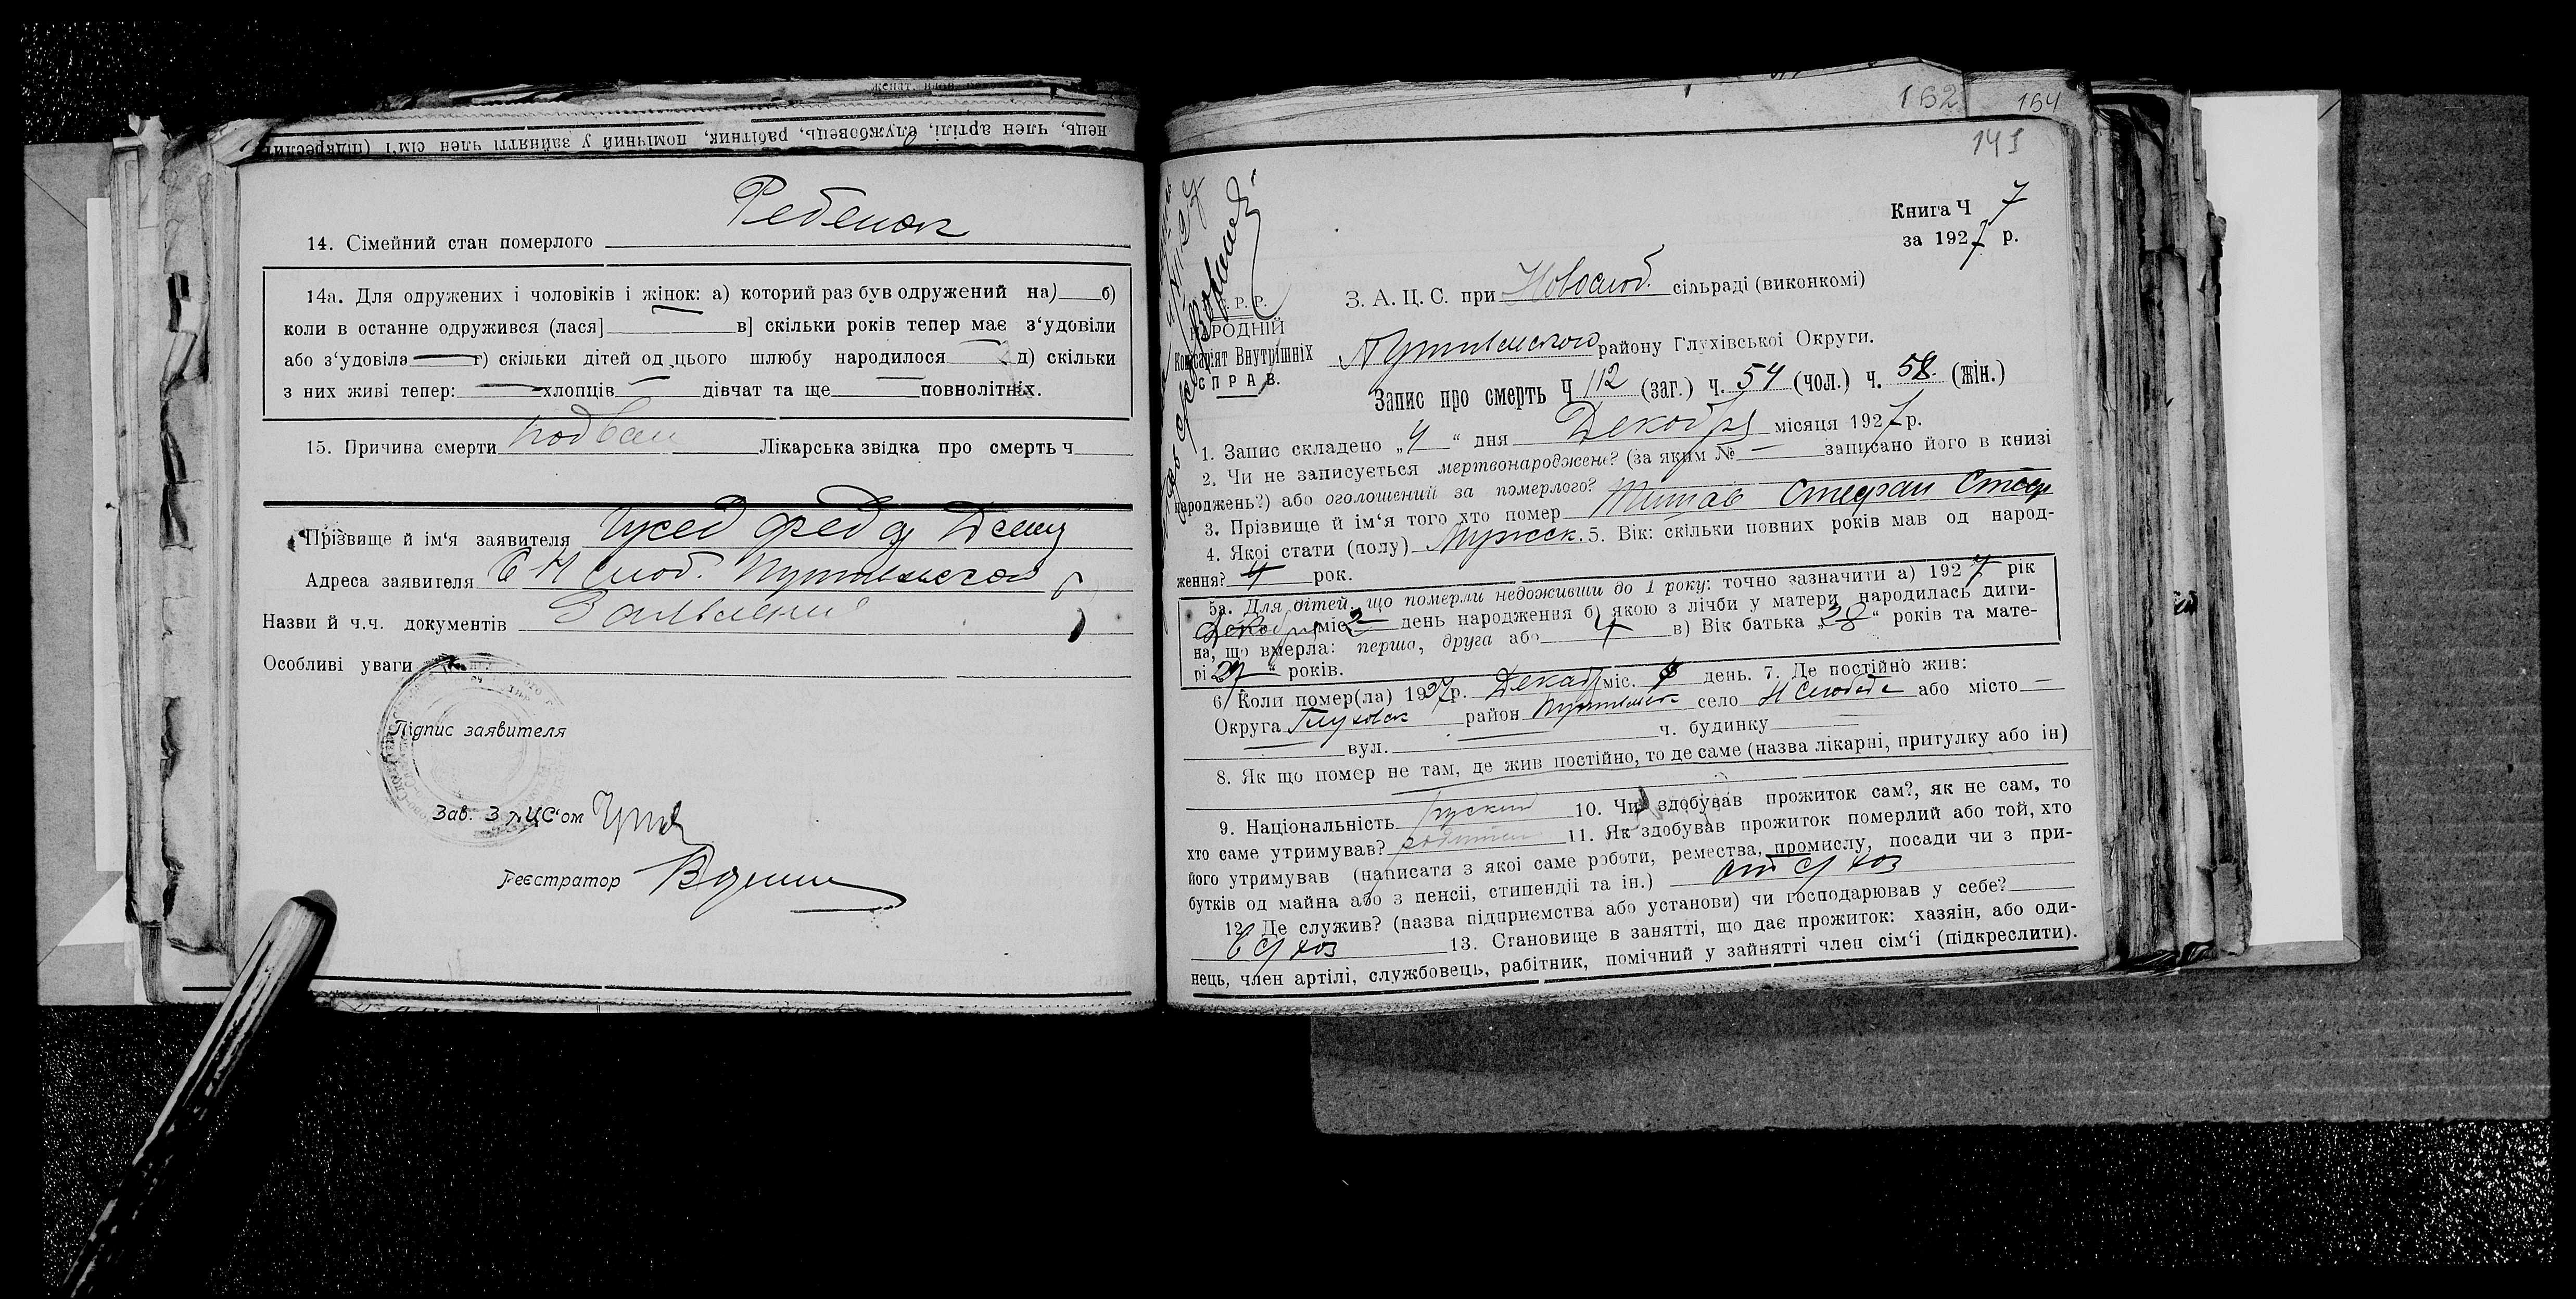 нець, член артілі, службовець, рабітник, помічний у зайнятті член сім‘ї (підкреслити
Ребенок
14. Сімейний стан померлого
14а. Для одружених і чоловіків і жінок: а) которий раз був одружений на) б)
коли в останне одружився (лася] в] скільки років тепер має з‘удовіли
або з‘удовіла г) скільки дітей од цього шлюбу народилося д) скільки
з них живі тепер: хлопців дівчат та ще повнолітніх.
15. Причина смерти Лікарська звідка про смерть ч
Прізвище й ім‘я заявителя
Адреса заявителя С Н Слоб. Путивльского р
Назви й ч.ч. документів Заявление
Особливі уваги
Підпис заявителя
Зав. ЗАЦС‘ом
Реєстратор
162 164
141
Книга Ч 7
за 1927 р.
Р. Р.
НАРОДНІЙ
Комісаріят Внутрішніх
СПРАВ.
З. А. Ц. С. при Новослоб. сільраді (виконкомі)
Путивльского району Глухівської Округи.
Запис про смерть Ч 112 (заг.) ч. 54 (чол.) ч. 58. (жін.)
1. Запис складено „4“ дня Декабря місяця 1927 р.
2. Чи не записується мертвонароджене? (за яким № — записано його в книзі
народжень?) або оголошений за померлого?
3. Прізвище й ім‘я того хто помер Титов Стефан Стеф
4. Якої стати (полу) Мужск. 5. Вік: скільки повних років мав од народ-
ження? рок.
5а. Для дітей, що померли недоживши до 1 року: точно зазначити а) 1927 рік
Декабря міс 2 день народження б) якою з лічби у матери народилась дити-
на, що вмерла: перша, друга або 4 в) Вік батька „28“ років та мате-
рі 27 “ років.
6. Коли помер(ла) 1927 р. Декабр міс. день. 7. Де постійно жив:
Округа Глуховск район Путивльск село Н Слобода або місто —
вул. ч. будинку
8. Як що помер не там, де жив постійно, то де саме (назва лікарні, притулку або ін)
9. Національність Руский 10. Чи здобував прожиток сам?, як не сам, то
хто саме утримував? родители 11. Як здобував прожиток померлий або той, хто
його утримував (написати з якої саме роботи, ремества, промислу, посади чи з при-
бутків од майна або з пенсії, стипендії та ін.) от с/хоз
12. Де служив? (назва підприємства або установи) чи господарював у себе?
в с/хоз 13. Становище в занятті, що дає прожиток: хазяін, або оди-
нець, член артілі, службовець, рабітник, помічний у зайнятті член сім‘ї (підкреслити).